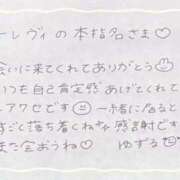 レヴィの本指名さま♡
会いに来てくれてありがとう
いつも自己肯定感あげてくれて
シアワセです 一緒に居ると
すごく落ち着くねえ 感謝です
また会おうね♡ ゆずる